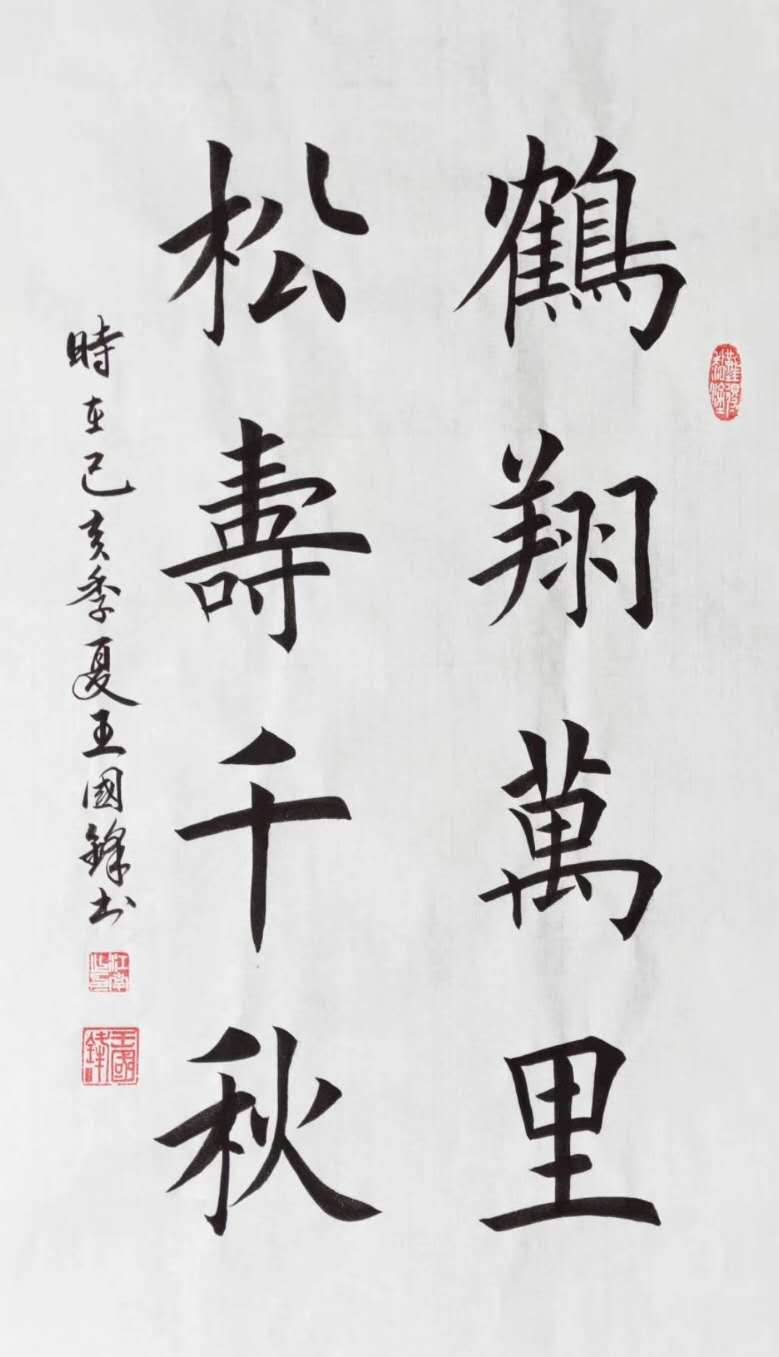 鶴翔萬里
松壽千秋
時在己亥季夏王國鋒书
王國鋒